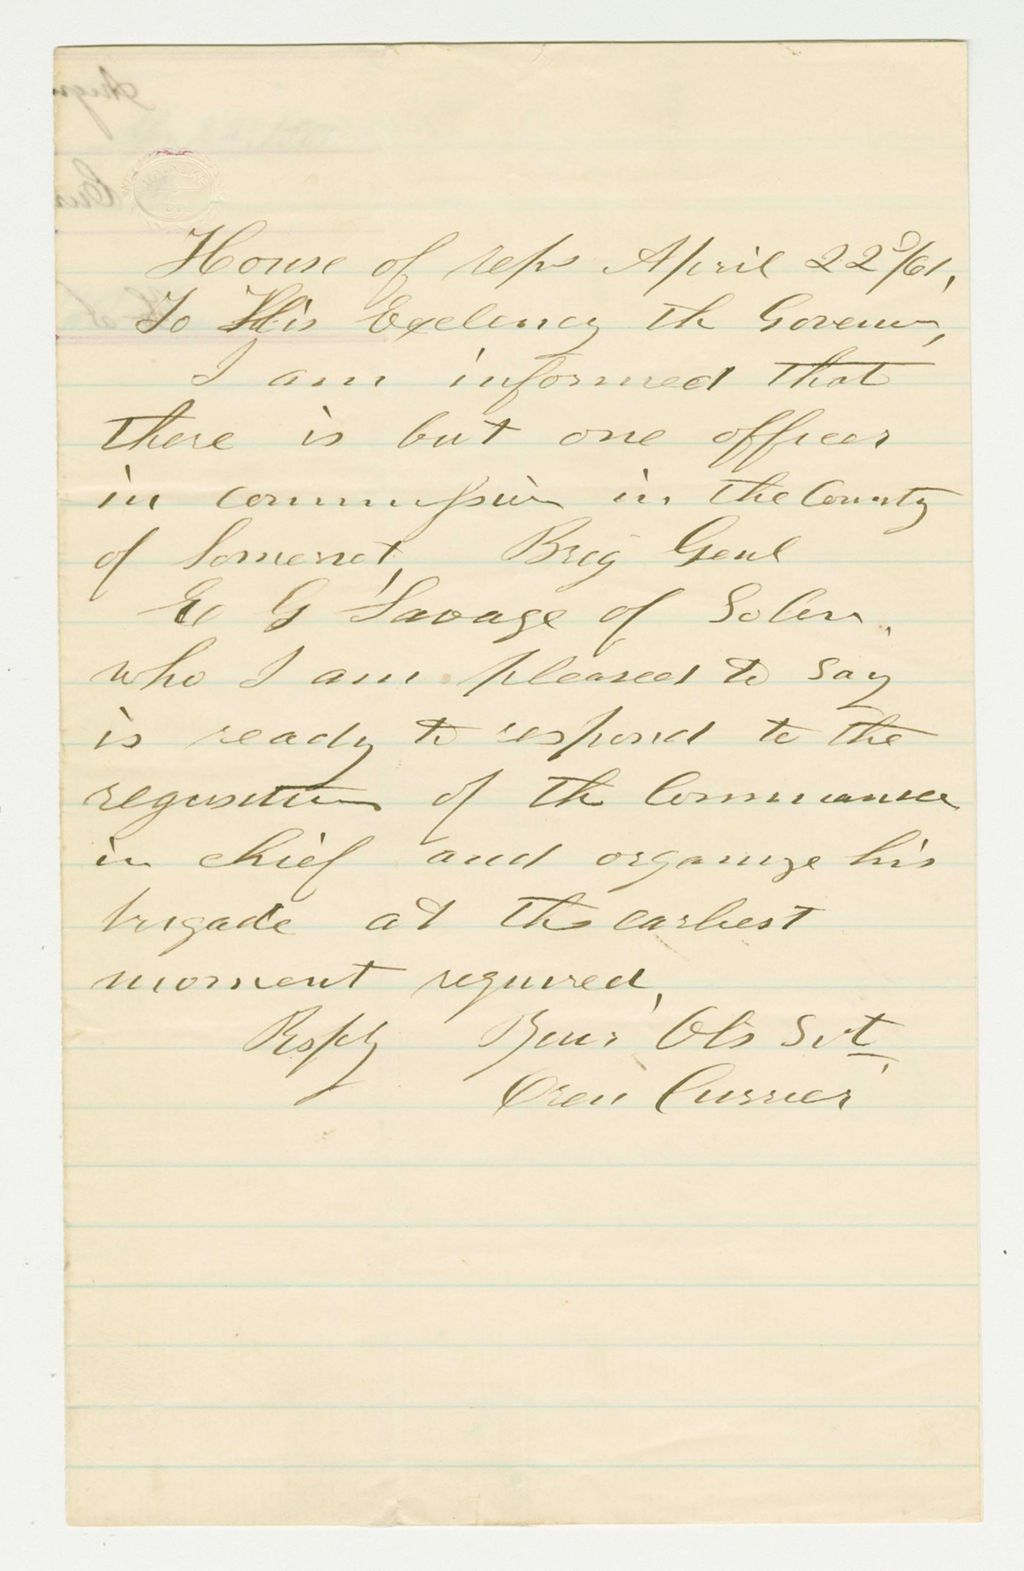 House of reps April 22d/61,
To His Exelency th Governor,
I am informed that
there is but one officer
in commission in the County
of Somerset, Brig Genl
E G Savage of Solon,
who I am pleased to say
is ready to respond to the
requisition of th Commander
in chief and organize his
brigade at the earliest
moment required,
Resply Your Obs Svt
Oren Currier